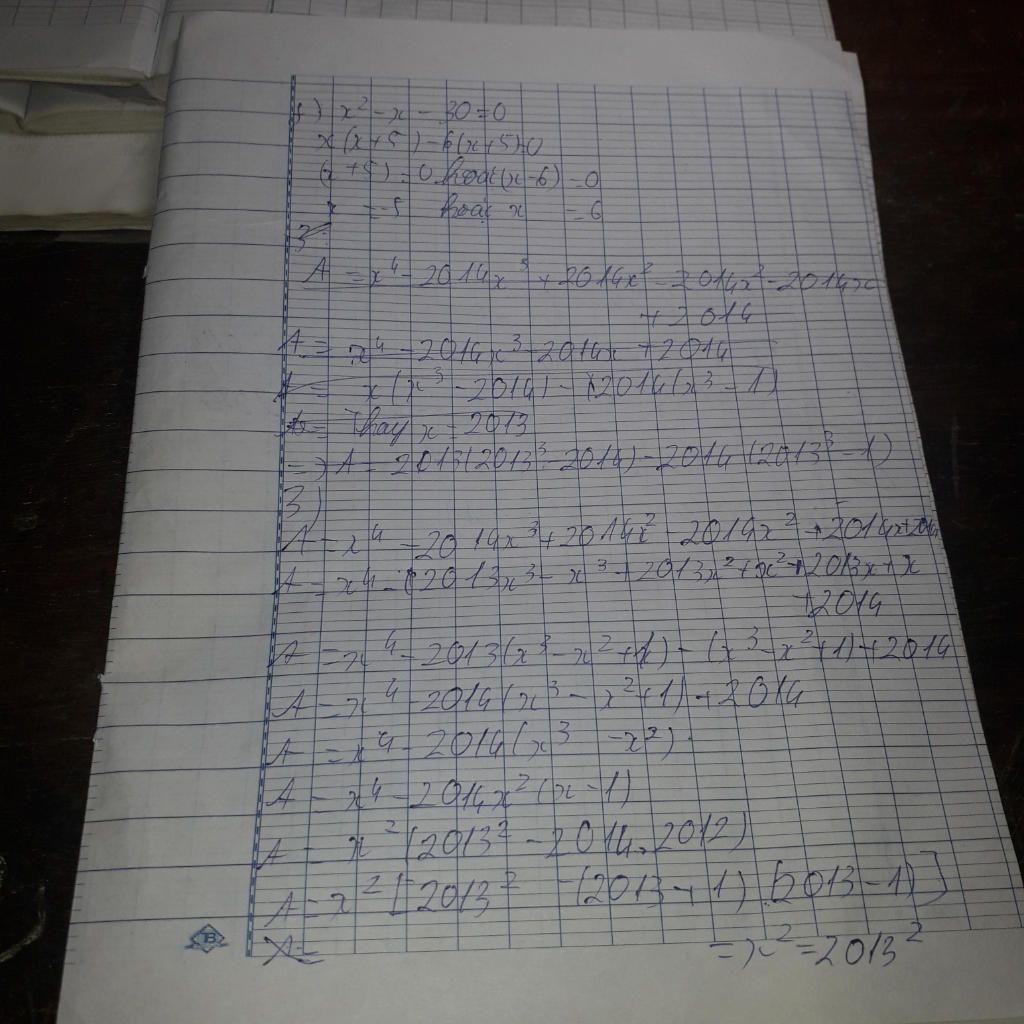 f) x² - x - 30 = 0
x(x+5) - 6(x+5) = 0
(x+5) = 0 hoặc (x-6) = 0
x = -5 hoặc x = 6
3
A = x⁴ - 2014x³ + 2014x² - 2014x² - 2014x
+ 2014
A = x⁴ - 2014x³ - 2014x + 2014
A = x(x³ - 2014) - 2014(x³ - 1)
Thay x = 2013
=> A = 2013(2013³ - 2014) - 2014(2013³ - 1)
3)
A = x⁴ - 2014x³ + 2014x² - 2014x² + 2014x + 2014
A = x⁴ - 2013x³ - x³ + 2013x² + x² + 2013x + x
+ 2014
A = x⁴ - 2013(x³ - x² + 1) - (x³ - x² + 1) + 2014
A = x⁴ - 2014(x³ - x² + 1) + 2014
A = x⁴ - 2014(x³ - x²)
A = x⁴ - 2014x²(x - 1)
A = x²(2013² - 2014.2012)
A = x²[2013² - (2013 + 1)(2013 - 1)]
A = => x² = 2013²
B